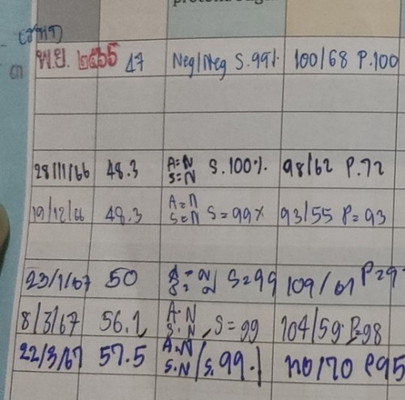 พ.ย. ๒๕๖๕ 47 Neg/Neg S.99% 100/68 P.100
28/11/66 48.3 A=N S=N S.100% 98/62 P.72
19/12/66 48.3 A=n S=n S=99% 93/55 P=93
23/1/67 50 A=N S=N S=99 109/61 P=9
8/3/67 56.1 A.N S.N, S=99 104/59 P.98
22/3/67 57.5 A.N S.N/S.99.1 110/70 P95